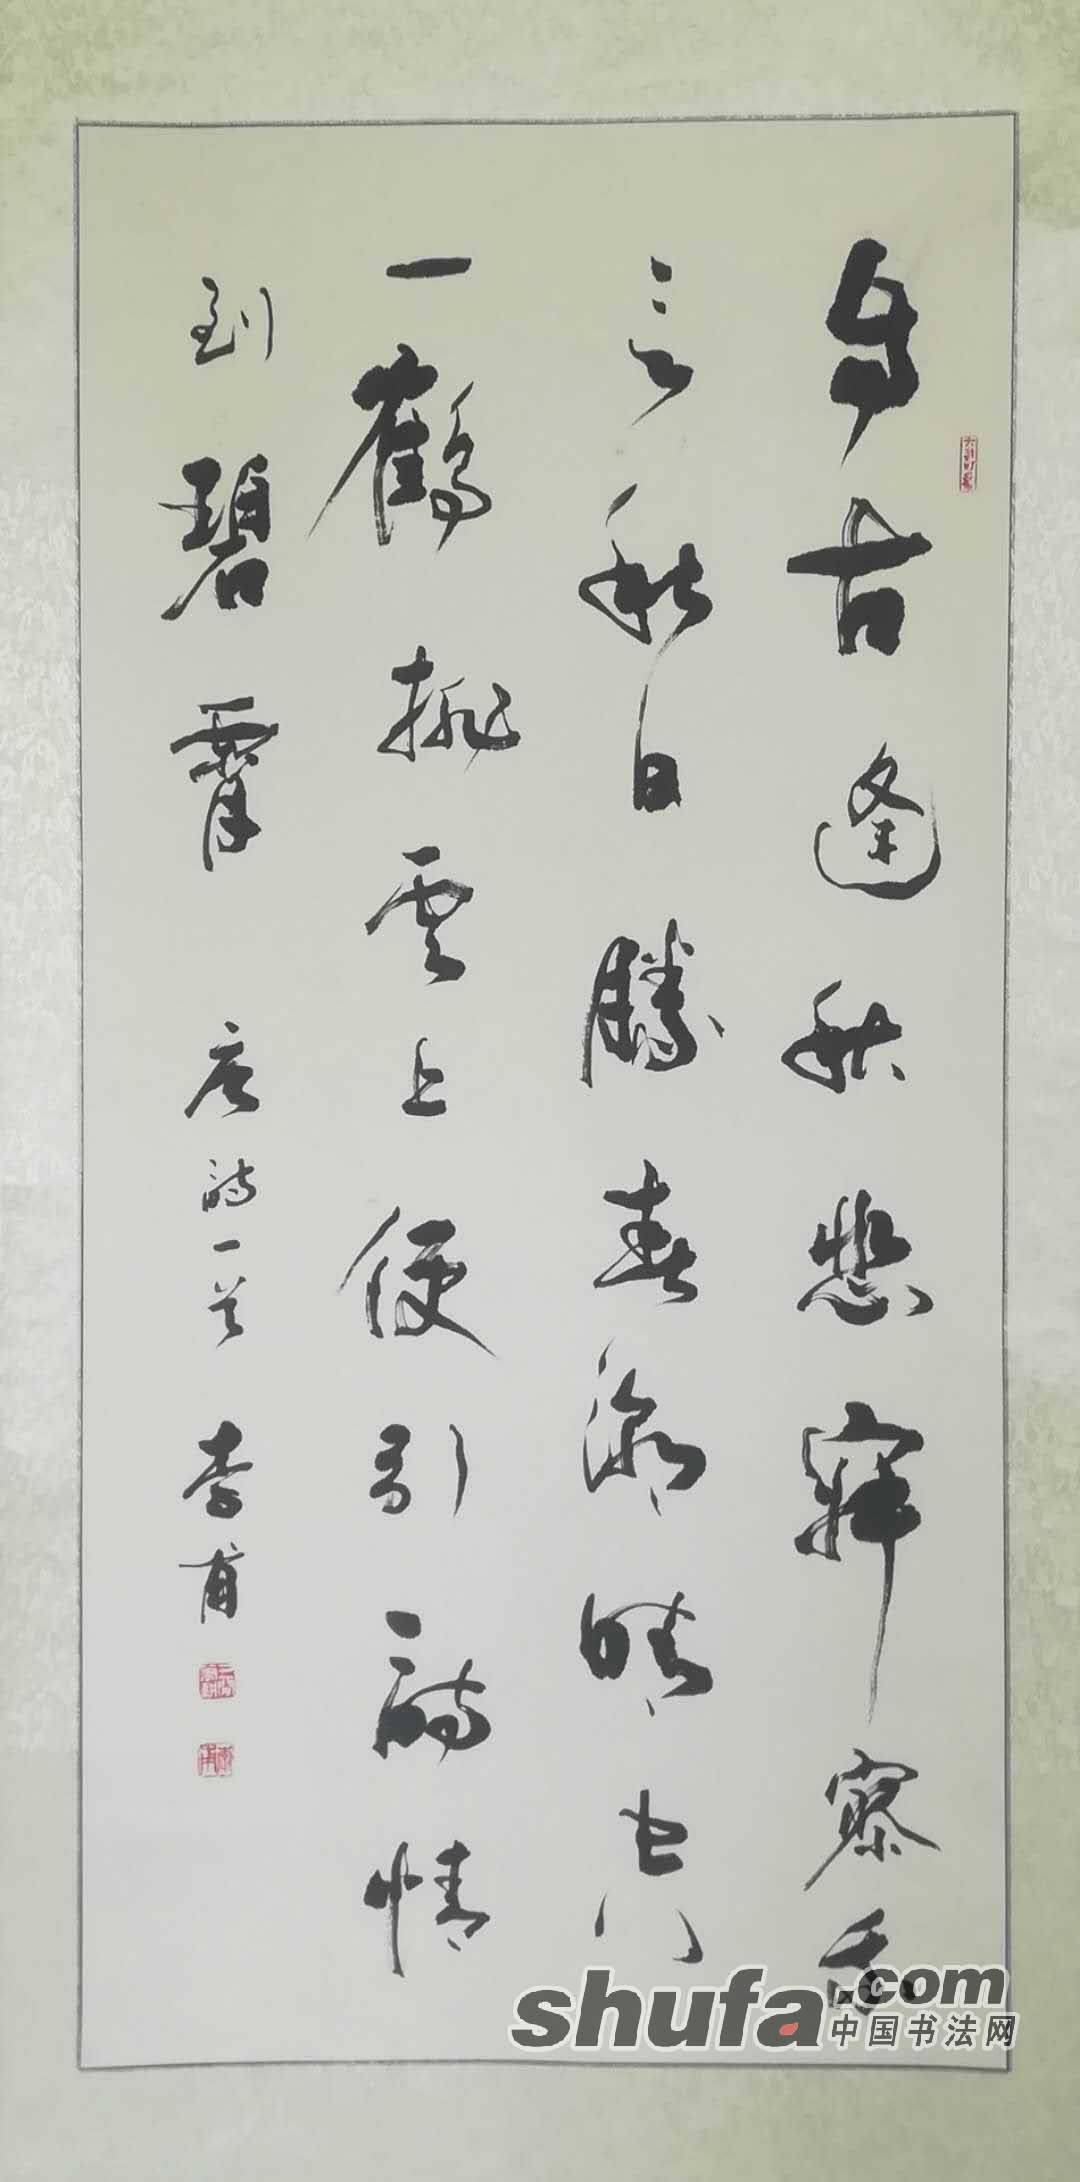 自古逢秋悲寂寥我
言秋日勝春潮晴空
一鶴排雲上便引詩情
到碧霄 唐詩一首 李甫
shufa.com
中国书法网